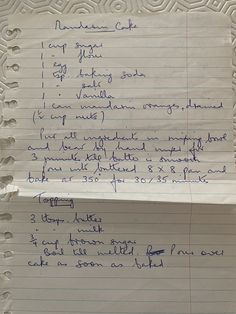 Mandarin Cake
1 cup sugar
1 " flour
1 egg
1 tsp. baking soda
1 " salt
1 " vanilla
1 can mandarin oranges, drained
(½ cup nuts)
Put all ingredients in mixing bowl
and bear by hand mixer for
3 minutes till batter is smooth
Pour into buttered 8 x 8 pan and
bake at 350° for 30/35 minutes
Topping
3 tbsps. butter
3 " milk
¾ cup brown sugar
Boil till melted. Pour over
cake as soon as baked